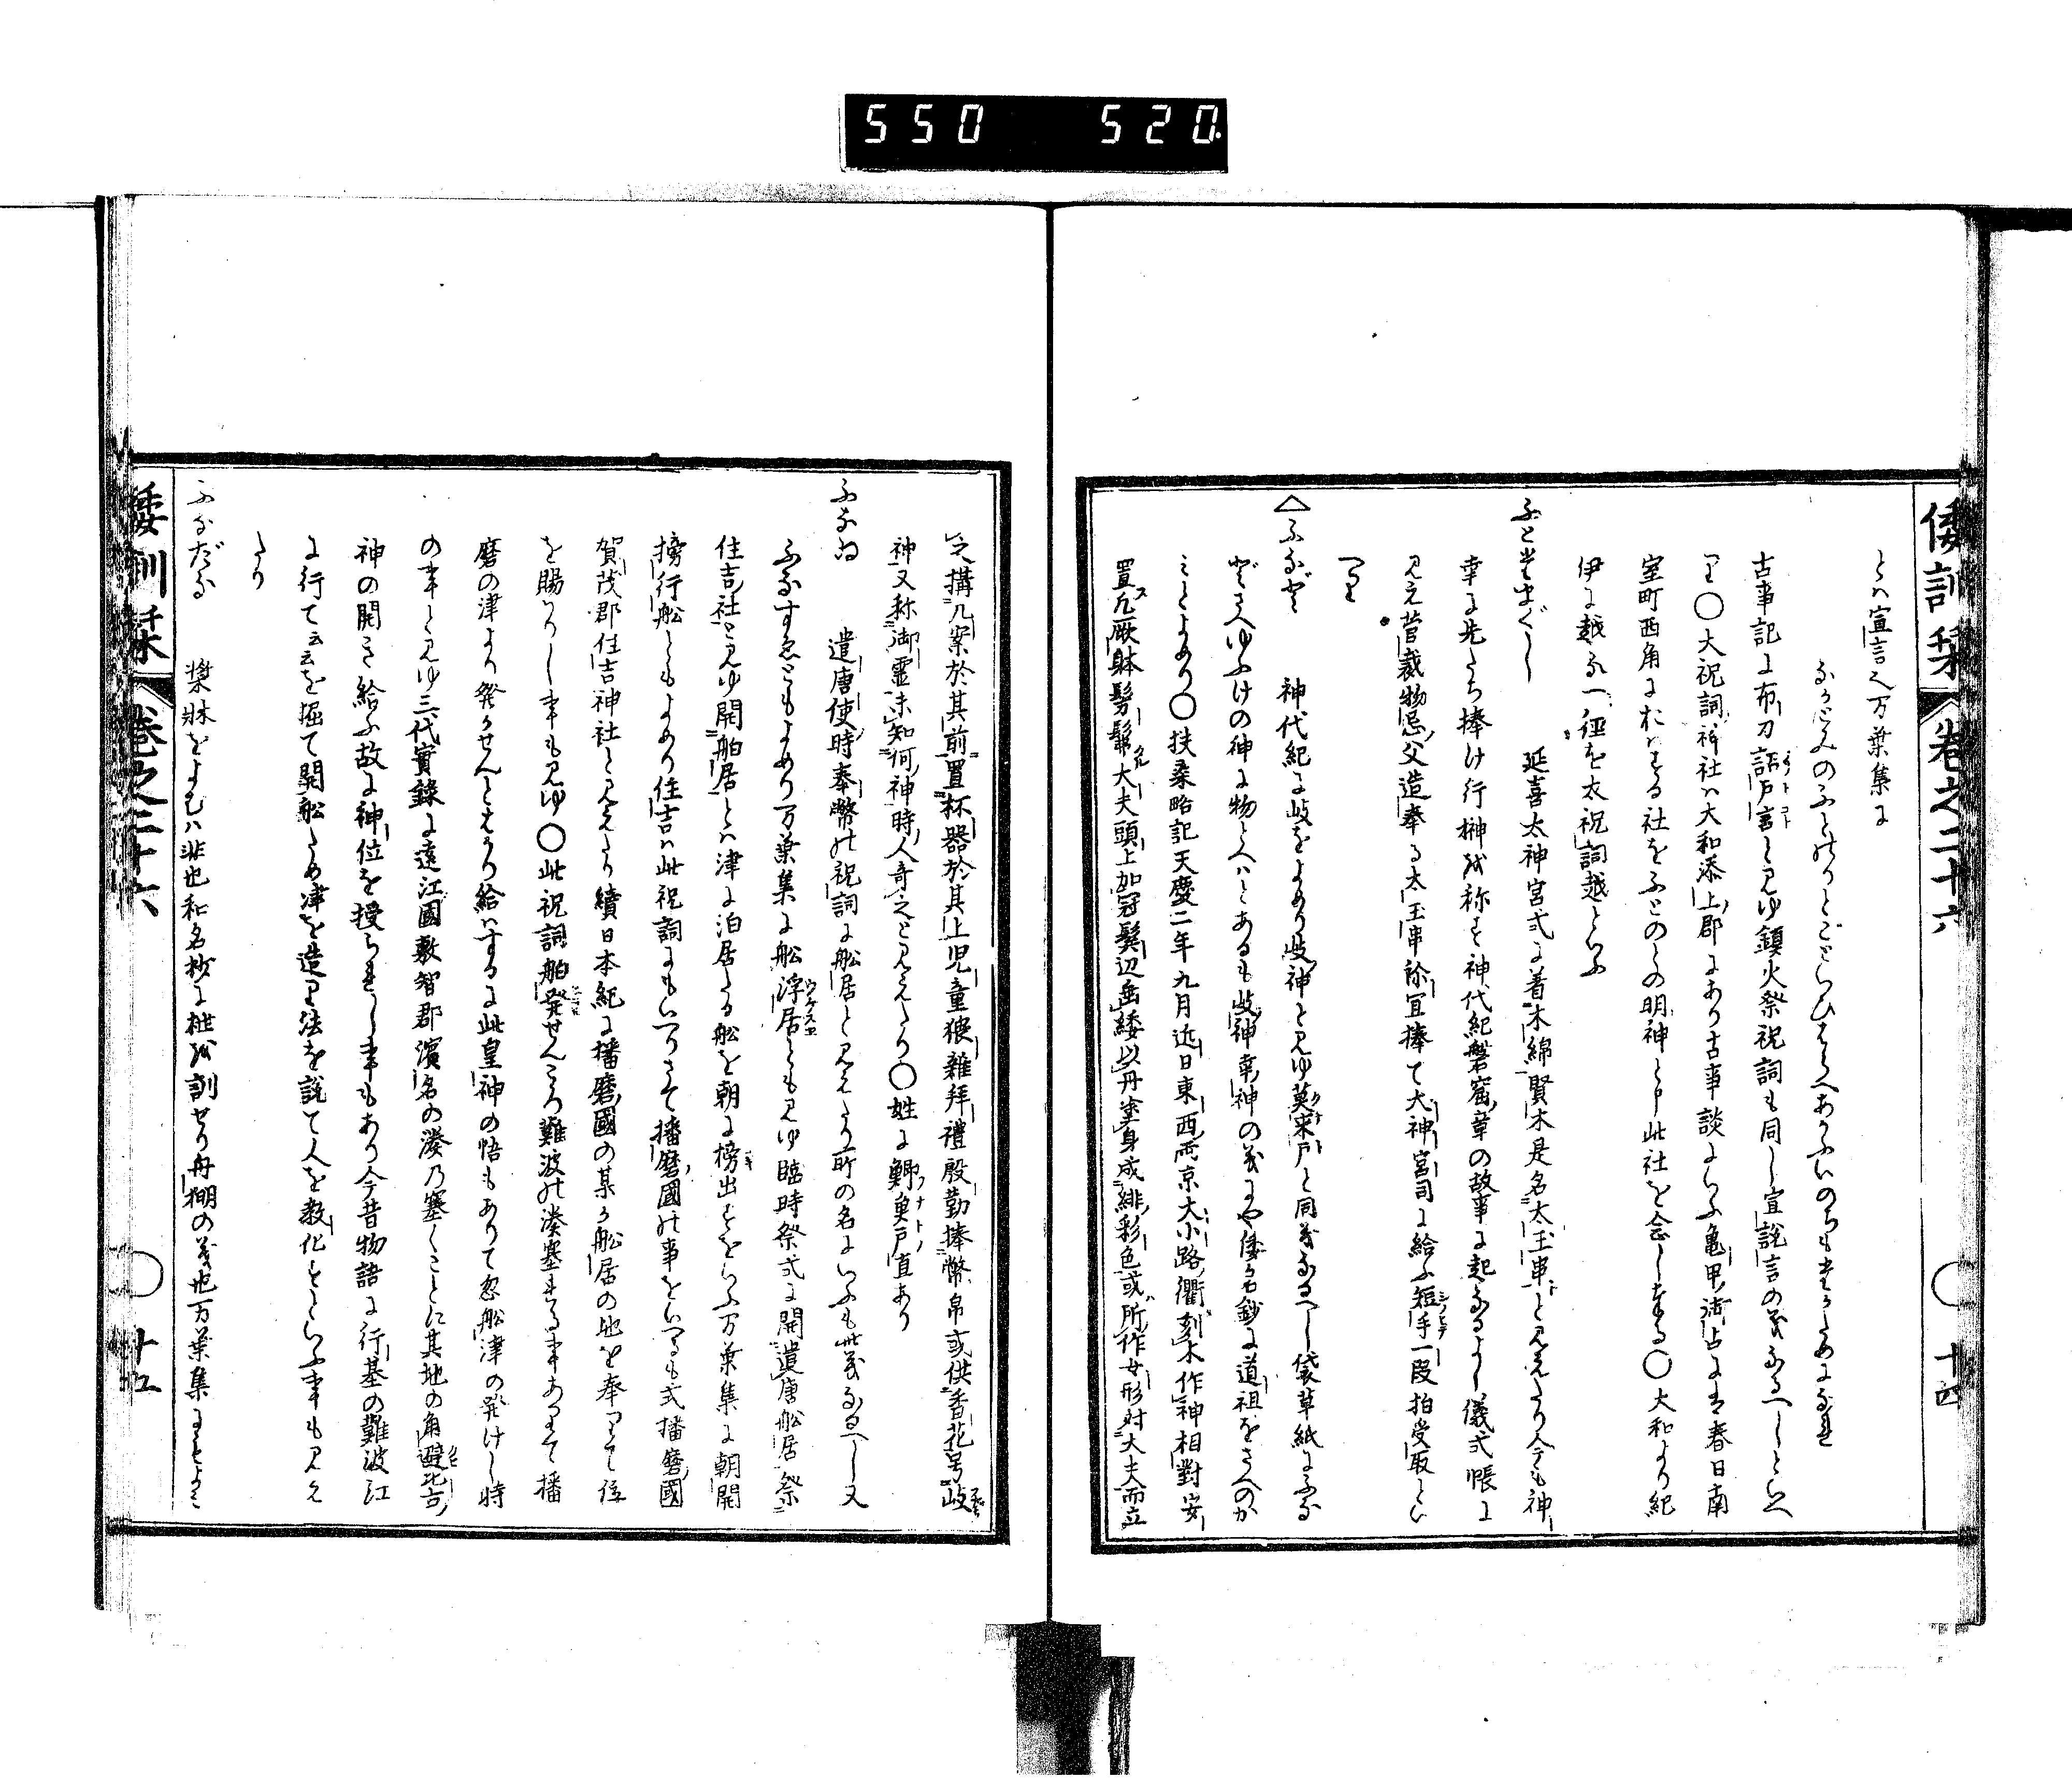 550 520
倭訓栞 卷之二十六 ○ 十四
とハ宣言之万葉集に
なかとみのふとのりとごといひはらへあかふいのちもたかためになれ
古事記に布刀詔戸言と見ゆ鎮火祭祝詞も同し宣説言の義なるへしといへ
り○大祝詞神社ハ大和添上郡にあり古事談にいふ亀甲御占には春日南
室町西角におハする社をふとのとの明神といふ此社を念し奉る○大和より紀
伊に越る一徑を太祝詞越といふ
ふとたまぐし 延喜太神宮式に着木綿賢木是名太玉串と見えたり今も神
幸に先たち捧け行榊を称す神代紀磐窟章の故事に起なるよし儀式帳に
見え菅裁物忌父造奉る太玉串祢宜捧て大神宮司に給ふ短手一段拍受取とい
へり
△ふなど 神代紀に岐をよめり岐神と見ゆ莫来戸と同義なるへし袋草紙にふな
どさへゆふけの神に物とへハとあるも岐神幸神の義にや倭名鈔に道祖をさへのか
ミとよめり○扶桑略記天慶二年九月近日東西両京大小路衢刻木作神相對安
置凡厥躰髣髴大夫頭上加冠鬢辺垂緌以丹塗身成緋彩色或所作女形対大夫而立
之搆几案於其前置杯器於其上児童猥雜拜禮殷勤捧幣帛或供香花号岐
神又称御靈未知何神時人奇之と見えたり○姓に鯽魚戸直あり
ふなゐ 遣唐使時奉幣の祝詞に船居と見えたり所の名にいふも此義なるへし又
ふなすゑともよめり万葉集に船浮居とも見ゆ臨時祭式に開遣唐船居祭
住吉社と見ゆ開舶居とハ津に泊居たる船を朝に榜出すをいふ万葉集に朝開
榜行船ともよめり住吉ハ此祝詞にもいへりさて播磨國の事をいへるも式播磨國
賀茂郡住吉神社と見えたり續日本紀に播磨國の某か船居の地を奉りて位
を賜りし事も見ゆ○此祝詞舶発せんころ難波の湊塞れる事あつて播
磨の津より発かせんとはかり給ハするに此皇神の悟もありて忽船津の発けし時
の事と見ゆ三代實錄に遠江國敷智郡濱名の湊乃塞くことに其地の角避比古
神の開き給ふ故に神位を授られし事もあり今昔物語に行基の難波江
に行て云々を掘て開船ため津を造り法を説て人を教化すといふ事も見え
たり
ふなだな 槳牀をよむハ非也和名抄に枻を訓せり舟棚の義也万葉集にもよミ
倭訓栞 卷之二十六 ○ 十五